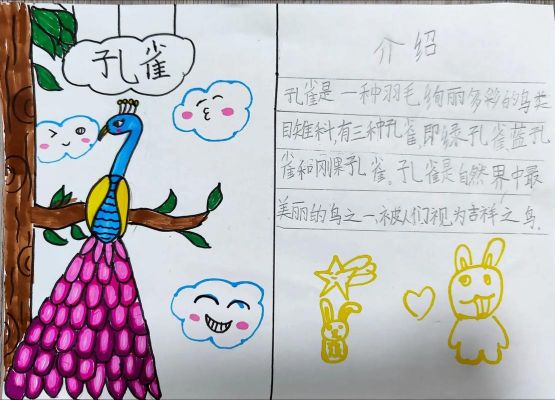 孔雀
介绍
孔雀是一种羽毛绚丽多彩的鸟类
目雉科,有三种孔雀,即绿孔雀蓝孔
雀和刚果孔雀。孔雀是自然界中最
美丽的鸟之一,被人们视为吉祥之鸟.